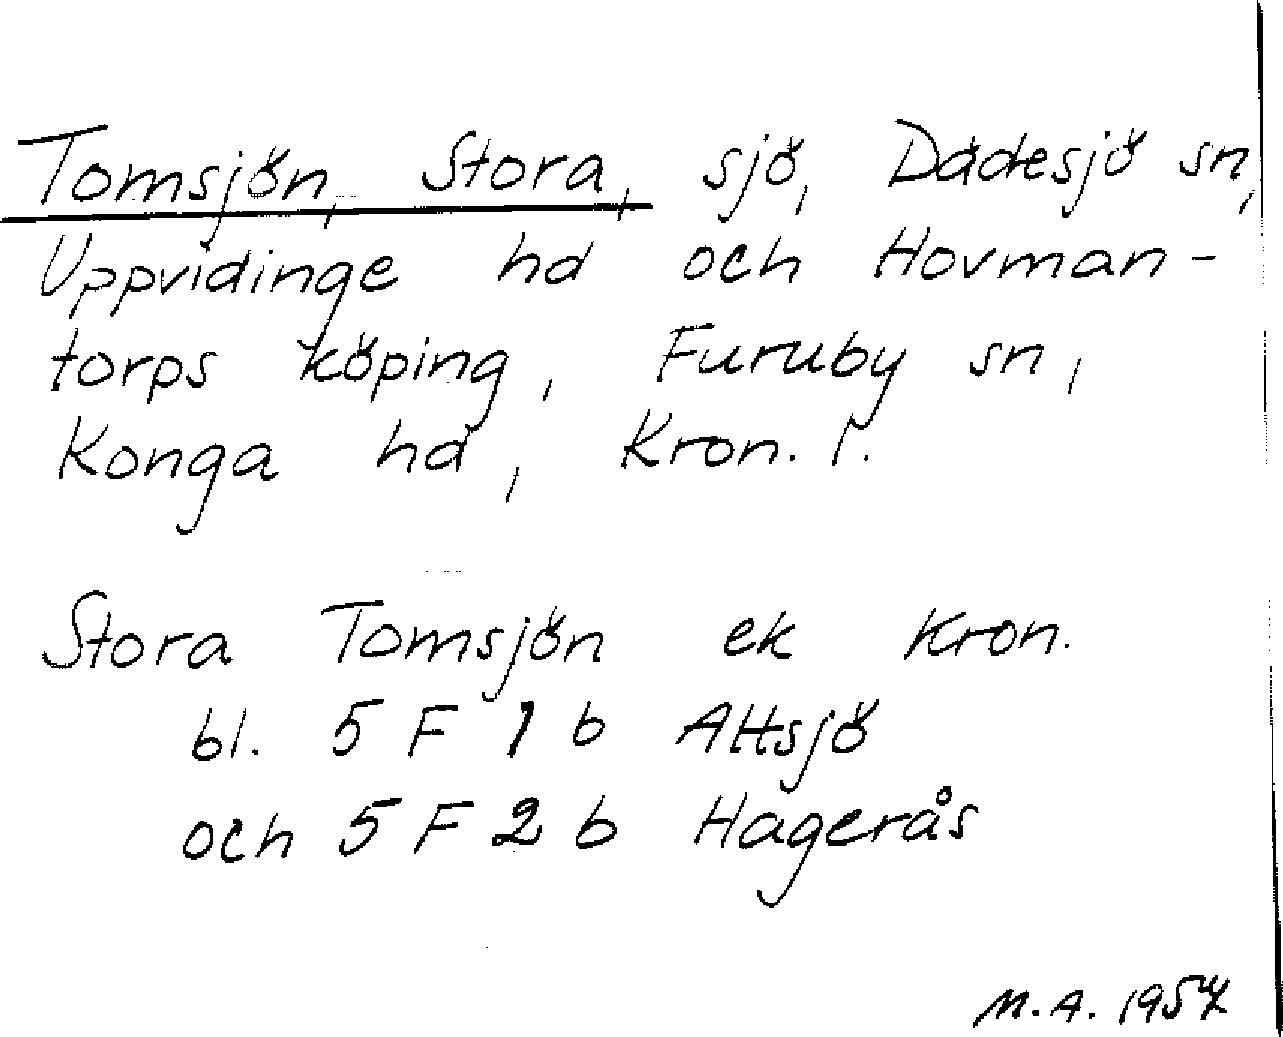 Tomsjön, Stora, sjö, Dädesjö sn,
Uppvidinge hd och Hovman-
torps köping, Furuby sn,
Konga hd, Kron. l.
Stora Tomsjön ek Kron.
bl. 5 F 1 b Attsjö
och 5 F 2 b Hagerås
M.A. 1957